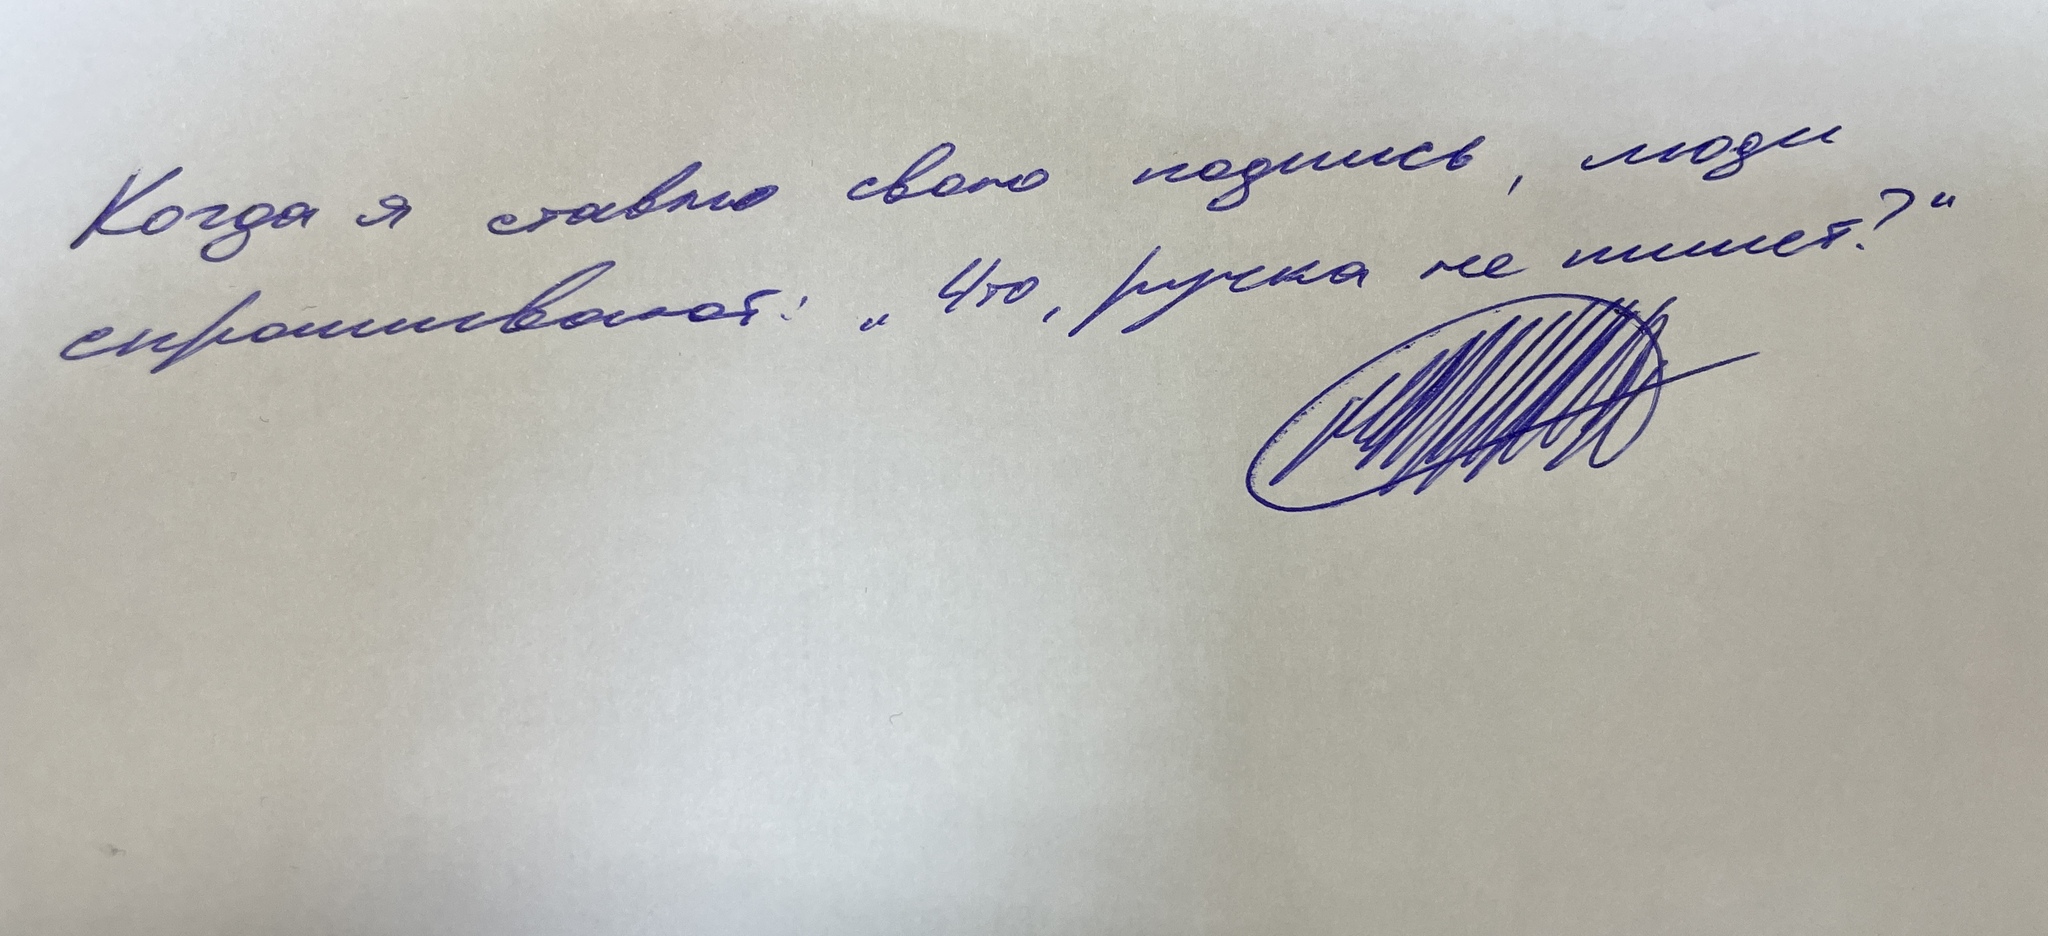 Когда я ставлю свою подпись, люди
спрашивают: „Что, ручка не пишет?“